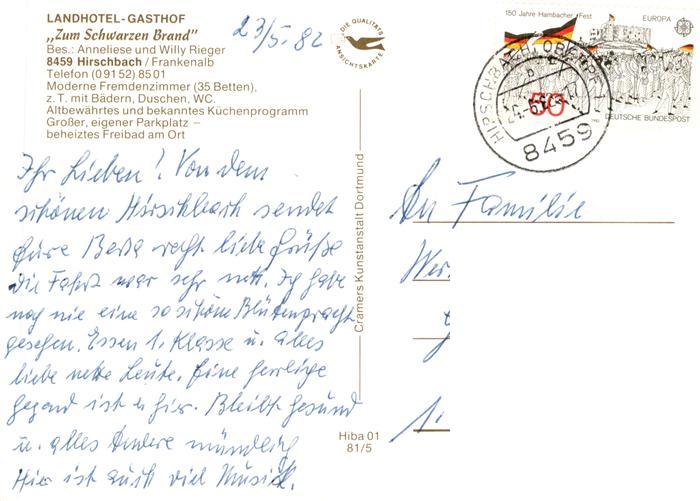 LANDHOTEL-GASTHOF
„Zum Schwarzen Brand"
Bes.: Anneliese und Willy Rieger
8459 Hirschbach / Frankenalb
Telefon (0 91 52) 85 01
Moderne Fremdenzimmer (35 Betten),
z. T. mit Bädern, Duschen, WC.
Altbewährtes und bekanntes Küchenprogramm
Großer, eigener Parkplatz –
beheiztes Freibad am Ort
23/5. 82
Ihr Lieben! Von dem
schönen Hirschbach sendet
Eure Berta recht liebe Grüße
die Fahrt war sehr nett. Ich habe
noch nie eine so schöne Blütenpracht
gesehen. Essen 1. Klasse u. alles
liebe nette Leute. Eine herrliche
gegend ist hier. Bleibt gesund
u. alles Andere mündlich
Hier ist auch viel Musik.
DIE QUALITÄTS
ANSICHTSKARTE
Cramers Kunstanstalt Dortmund
Hiba 01
81/5
150 Jahre Hambacher Fest
EUROPA
50
DEUTSCHE BUNDESPOST
HIRSCHBACH, OBERPF
8459
An Familie
Wer.